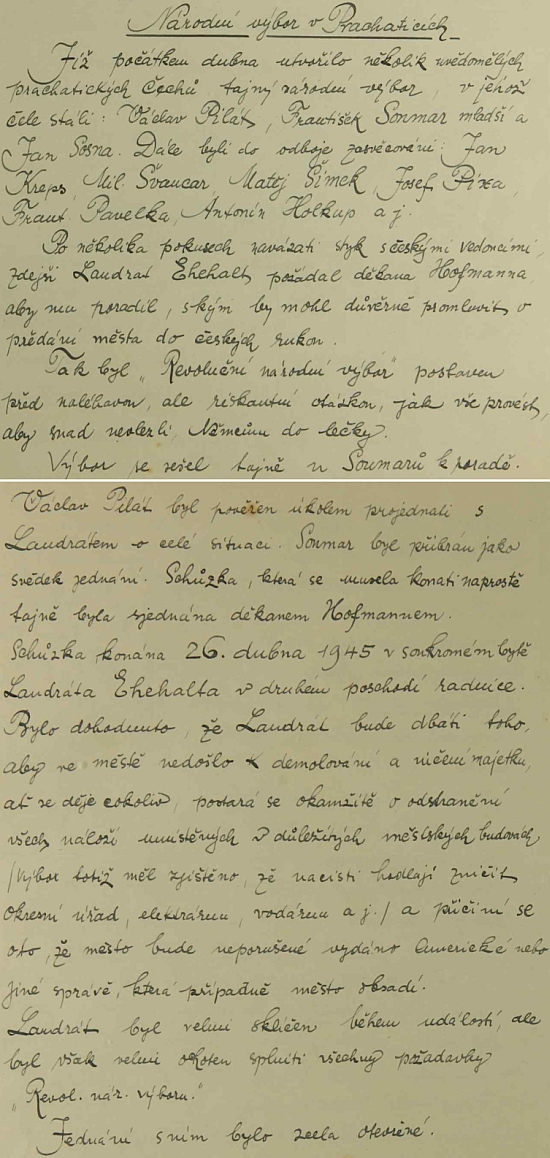 Národní výbor v Prachaticích
Již počátkem dubna utvořilo několik uvědomělých
prachatických Čechů tajný národní výbor, v jehož
čele stáli: Václav Pilát, František Soumar mladší a
Jan Sosna. Dále byli do odboje zasvěcováni: Jan
Kreps, Mil. Švancar, Matěj Šimek, Josef Pixa,
Frant. Pavelka, Antonín Holkup a j.
Po několika pokusech navázati styk s českými vedoucími,
zdejší Landrat Ehehalt požádal děkana Hofmanna
aby mu poradil, s kým by mohl důvěrně promluvit o
předání města do českých rukou.
Tak byl „Revoluční národní výbor" postaven
před naléhavou, ale riskantní otázkou, jak vše provést,
aby snad nevlezli Němcům do léčky.
Výbor se sešel tajně u Soumarů k poradě.
Václav Pilát byl pověřen úkolem projednati s
Landrátem o celé situaci. Soumar byl přibrán jako
svědek jednání. Schůzka, která se musela konati naprostě
tajně byla sjednána děkanem Hofmannem.
Schůzka konána 26. dubna 1945 v soukromém bytě
Landráta Ehehalta v druhém poschodí radnice.
Bylo dohodnuto, že Landrát bude dbáti toho,
aby ve městě nedošlo k demolování a ničení majetku,
ať se děje cokoliv, postará se okamžitě o odstranění
všech náloží umístěných v důležitých městských budovách
/výbor totiž měl zjištěno, že nacisti hodlají zničit
okresní úřad, elektrárnu, vodárnu a j./ a přičiní se
oto, že město bude neporušené vydáno Americké nebo
jiné správě, která případně město obsadí.
Landrát byl velmi sklíčen během událostí, ale
byl však velmi ochoten splniti všechny požadavky
„Revol. nár. výboru."
Jednání s ním bylo zcela otevřené.